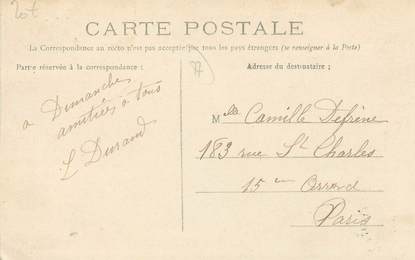 20f
CARTE POSTALE
La Correspondance au recto n'est pas acceptée par tous les pays étrangers (se renseigner à la Poste)
Partie réservée à la correspondance :
Adresse du destinataire ;
77
a Dimanche
amitiées à tous
L Durand
Mlle Camille Defrène
183 rue St Charles
15em Arrond
Paris